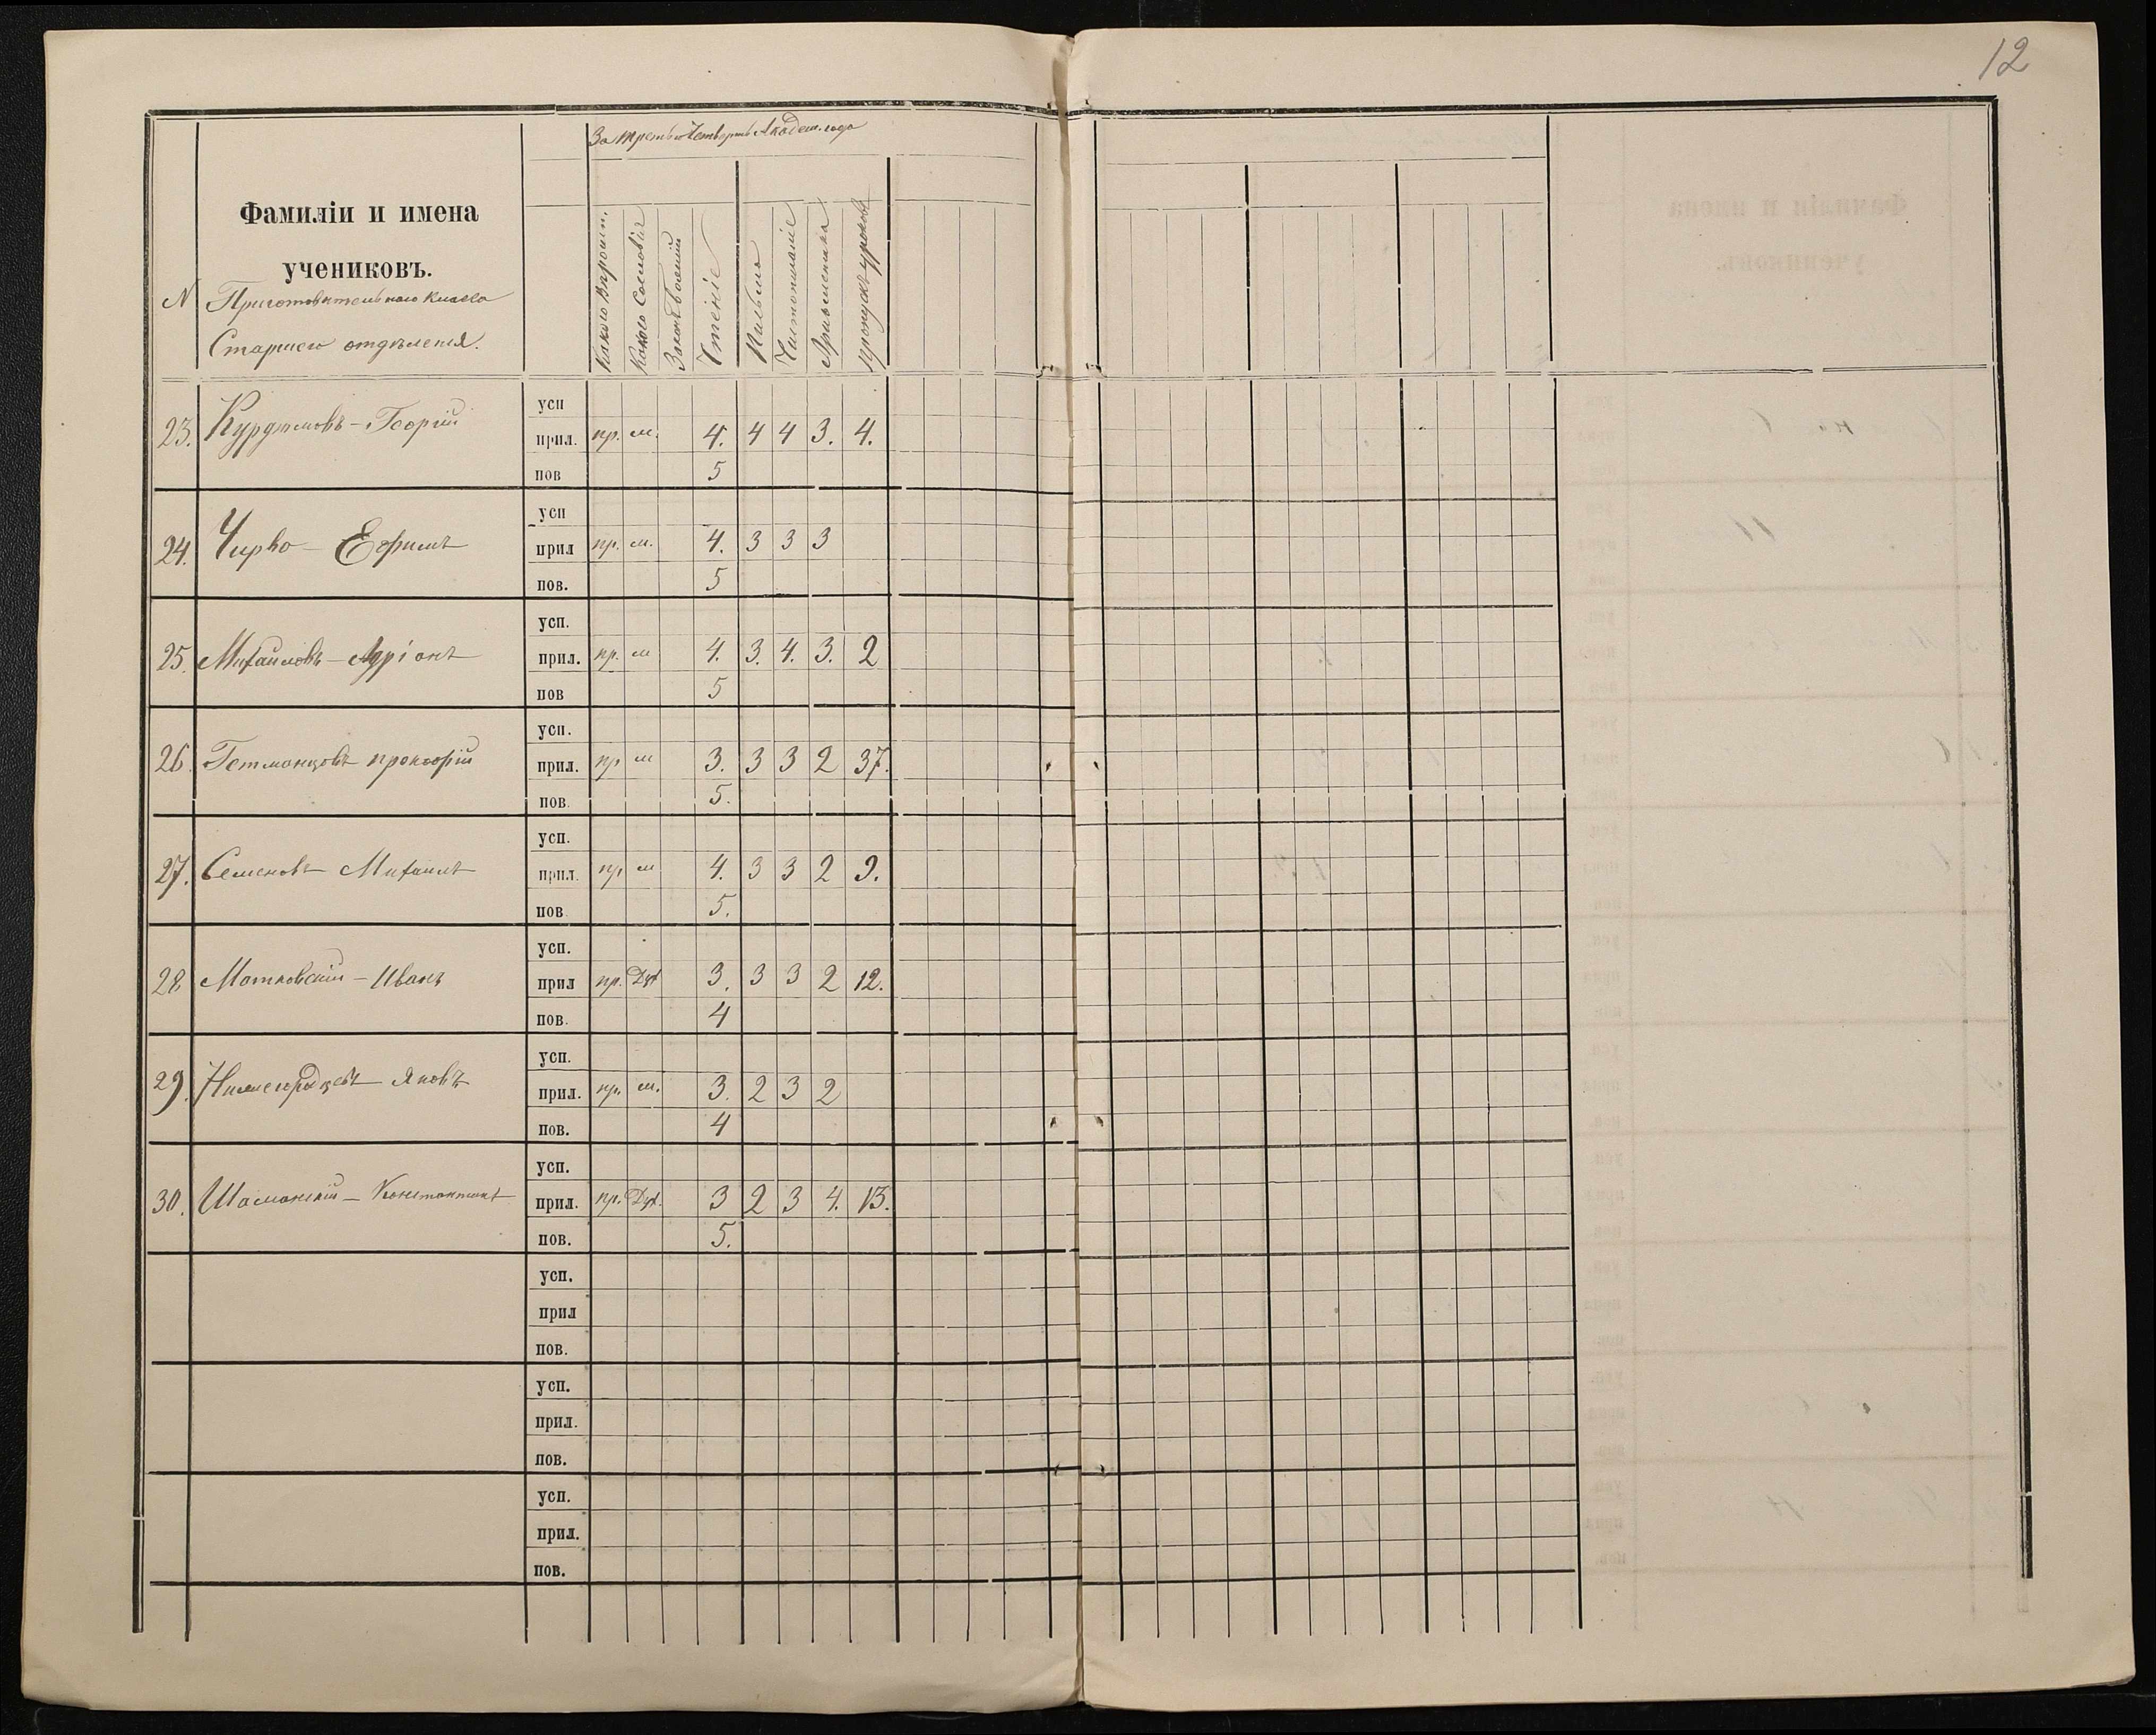 12
За третью Четверть Академ. года
Фамиліи и имена
учениковъ.
N Приготовительнаго Класса
Старшего отдѣленія.
Какого Вѣроисп.
Какого Сословія
Законъ Божій
Чтеніе
Письмо
Чистописаніе
Ариѳметика
пропускъ уроковъ
усп
23. Георгій прил. пр. м. 4. 4 4 3. 4.
пов 5
усп
24. Чирво - Ефимъ прил пр. м. 4. 3 3 3
пов. 5
усп.
25. Михайловъ - прил. пр. м 4. 3. 4. 3. 2
пов 5
усп.
26. Гетманцовъ прокофій прил. пр м 3. 3 3 2 37.
пов. 5.
усп.
27. Семеновъ Михаилъ прил. пр м 4. 3 3 2 9.
пов 5.
усп.
28 Матковскій - Иванъ прил пр. Дух 3. 3 3 2 12.
пов. 4
усп.
29. Нижегородцевъ Яковъ прил. пр. м. 3. 2 3 2
пов. 4
усп.
30. Шаманскій - Константинъ прил. пр. Дух. 3 2 3 4. 13.
пов. 5.
усп.
прил
пов.
усп.
прил.
пов.
усп.
прил.
пов.